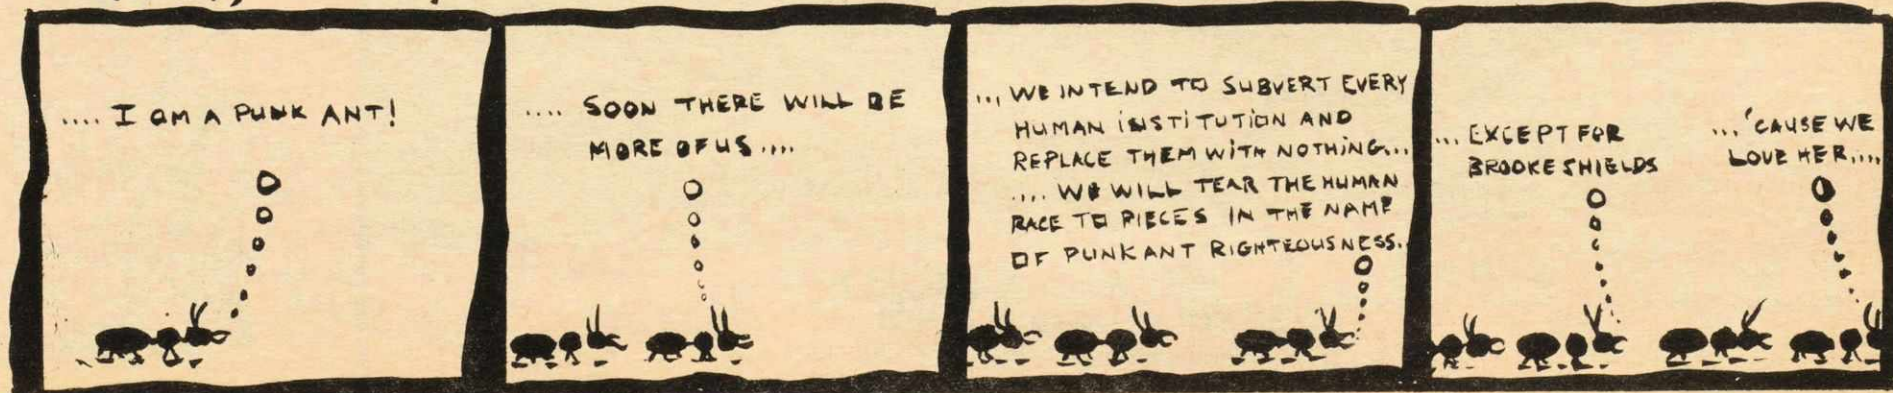 .... I AM A PUNK ANT!
.... SOON THERE WILL BE
MORE OF US ....
... WE INTEND TO SUBVERT EVERY
HUMAN INSTITUTION AND
REPLACE THEM WITH NOTHING...
.... WE WILL TEAR THE HUMAN
RACE TO PIECES IN THE NAME
OF PUNK ANT RIGHTEOUSNESS.
... EXCEPT FOR
BROOKE SHIELDS
... 'CAUSE WE
LOVE HER....